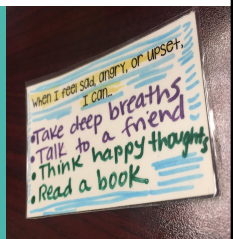 When I feel sad, angry, or upset,
I can...
•Take deep breaths
•Talk to a friend
•Think happy thoughts
•Read a book